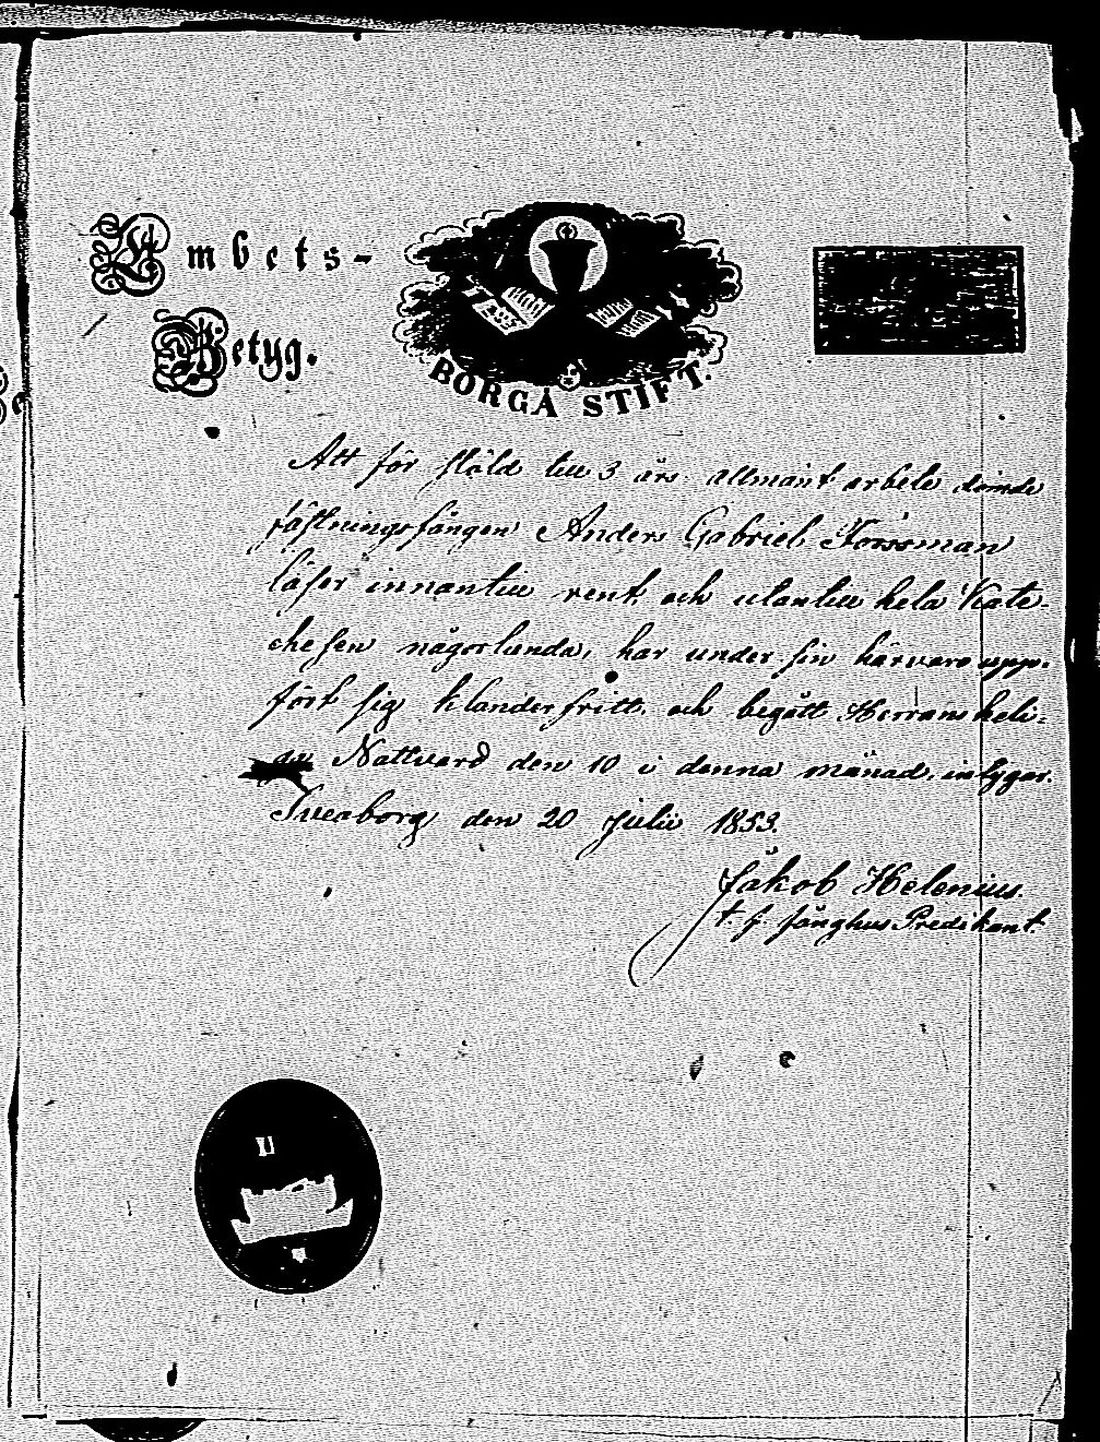 Ambets-
Betyg.
BORGÅ STIFT.
Att för stöld till 3 års allmänt arbete dömde
fästningsfången Anders Gabriel Forssman
läser innantill rent, och utantill hela Kate-
chesen någorlunda, har under sin härvaro upp-
fört sig klanderfritt, och begått Herrans heli-
ga Nattvard den 10 i denna månad, intygar.
Sveaborg den 20 Julii 1853.
Jakob Helenius.
t. f. fånghus Predikant